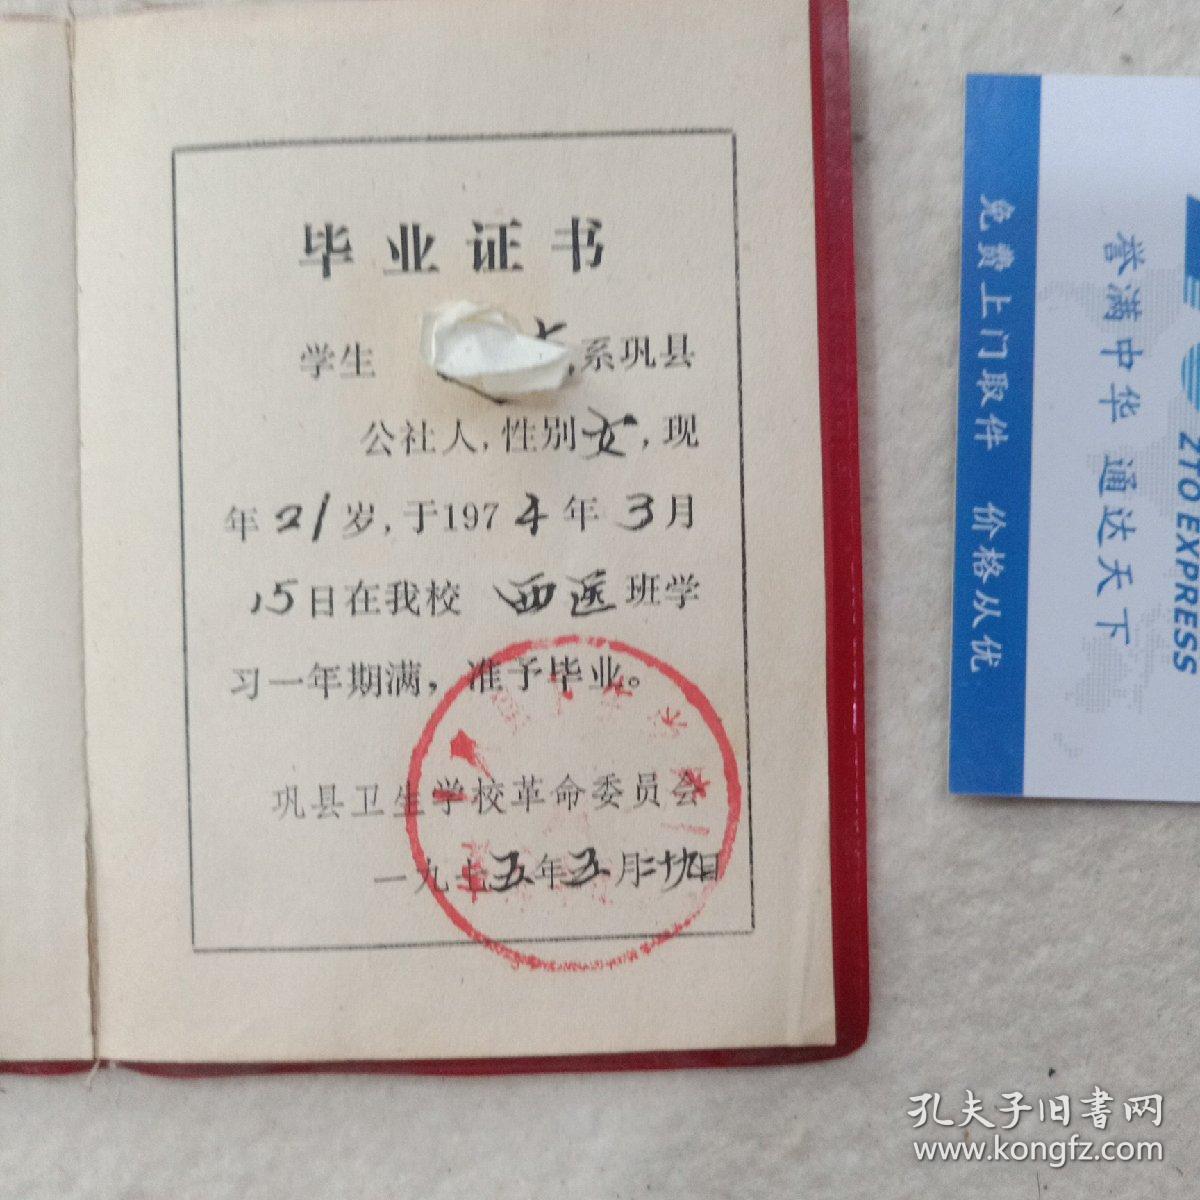 毕业证书
学生 系巩县
公社人,性别女,现
年21岁,于1974年3月
15日在我校 西医班学
习一年期满,准予毕业。
巩县卫生学校革命委员会
一九七五年五月二十九日
免费上门取件 价格从优
誉满中华 通达天下
ZTO EXPRESS
孔夫子旧书网
www.kongfz.com